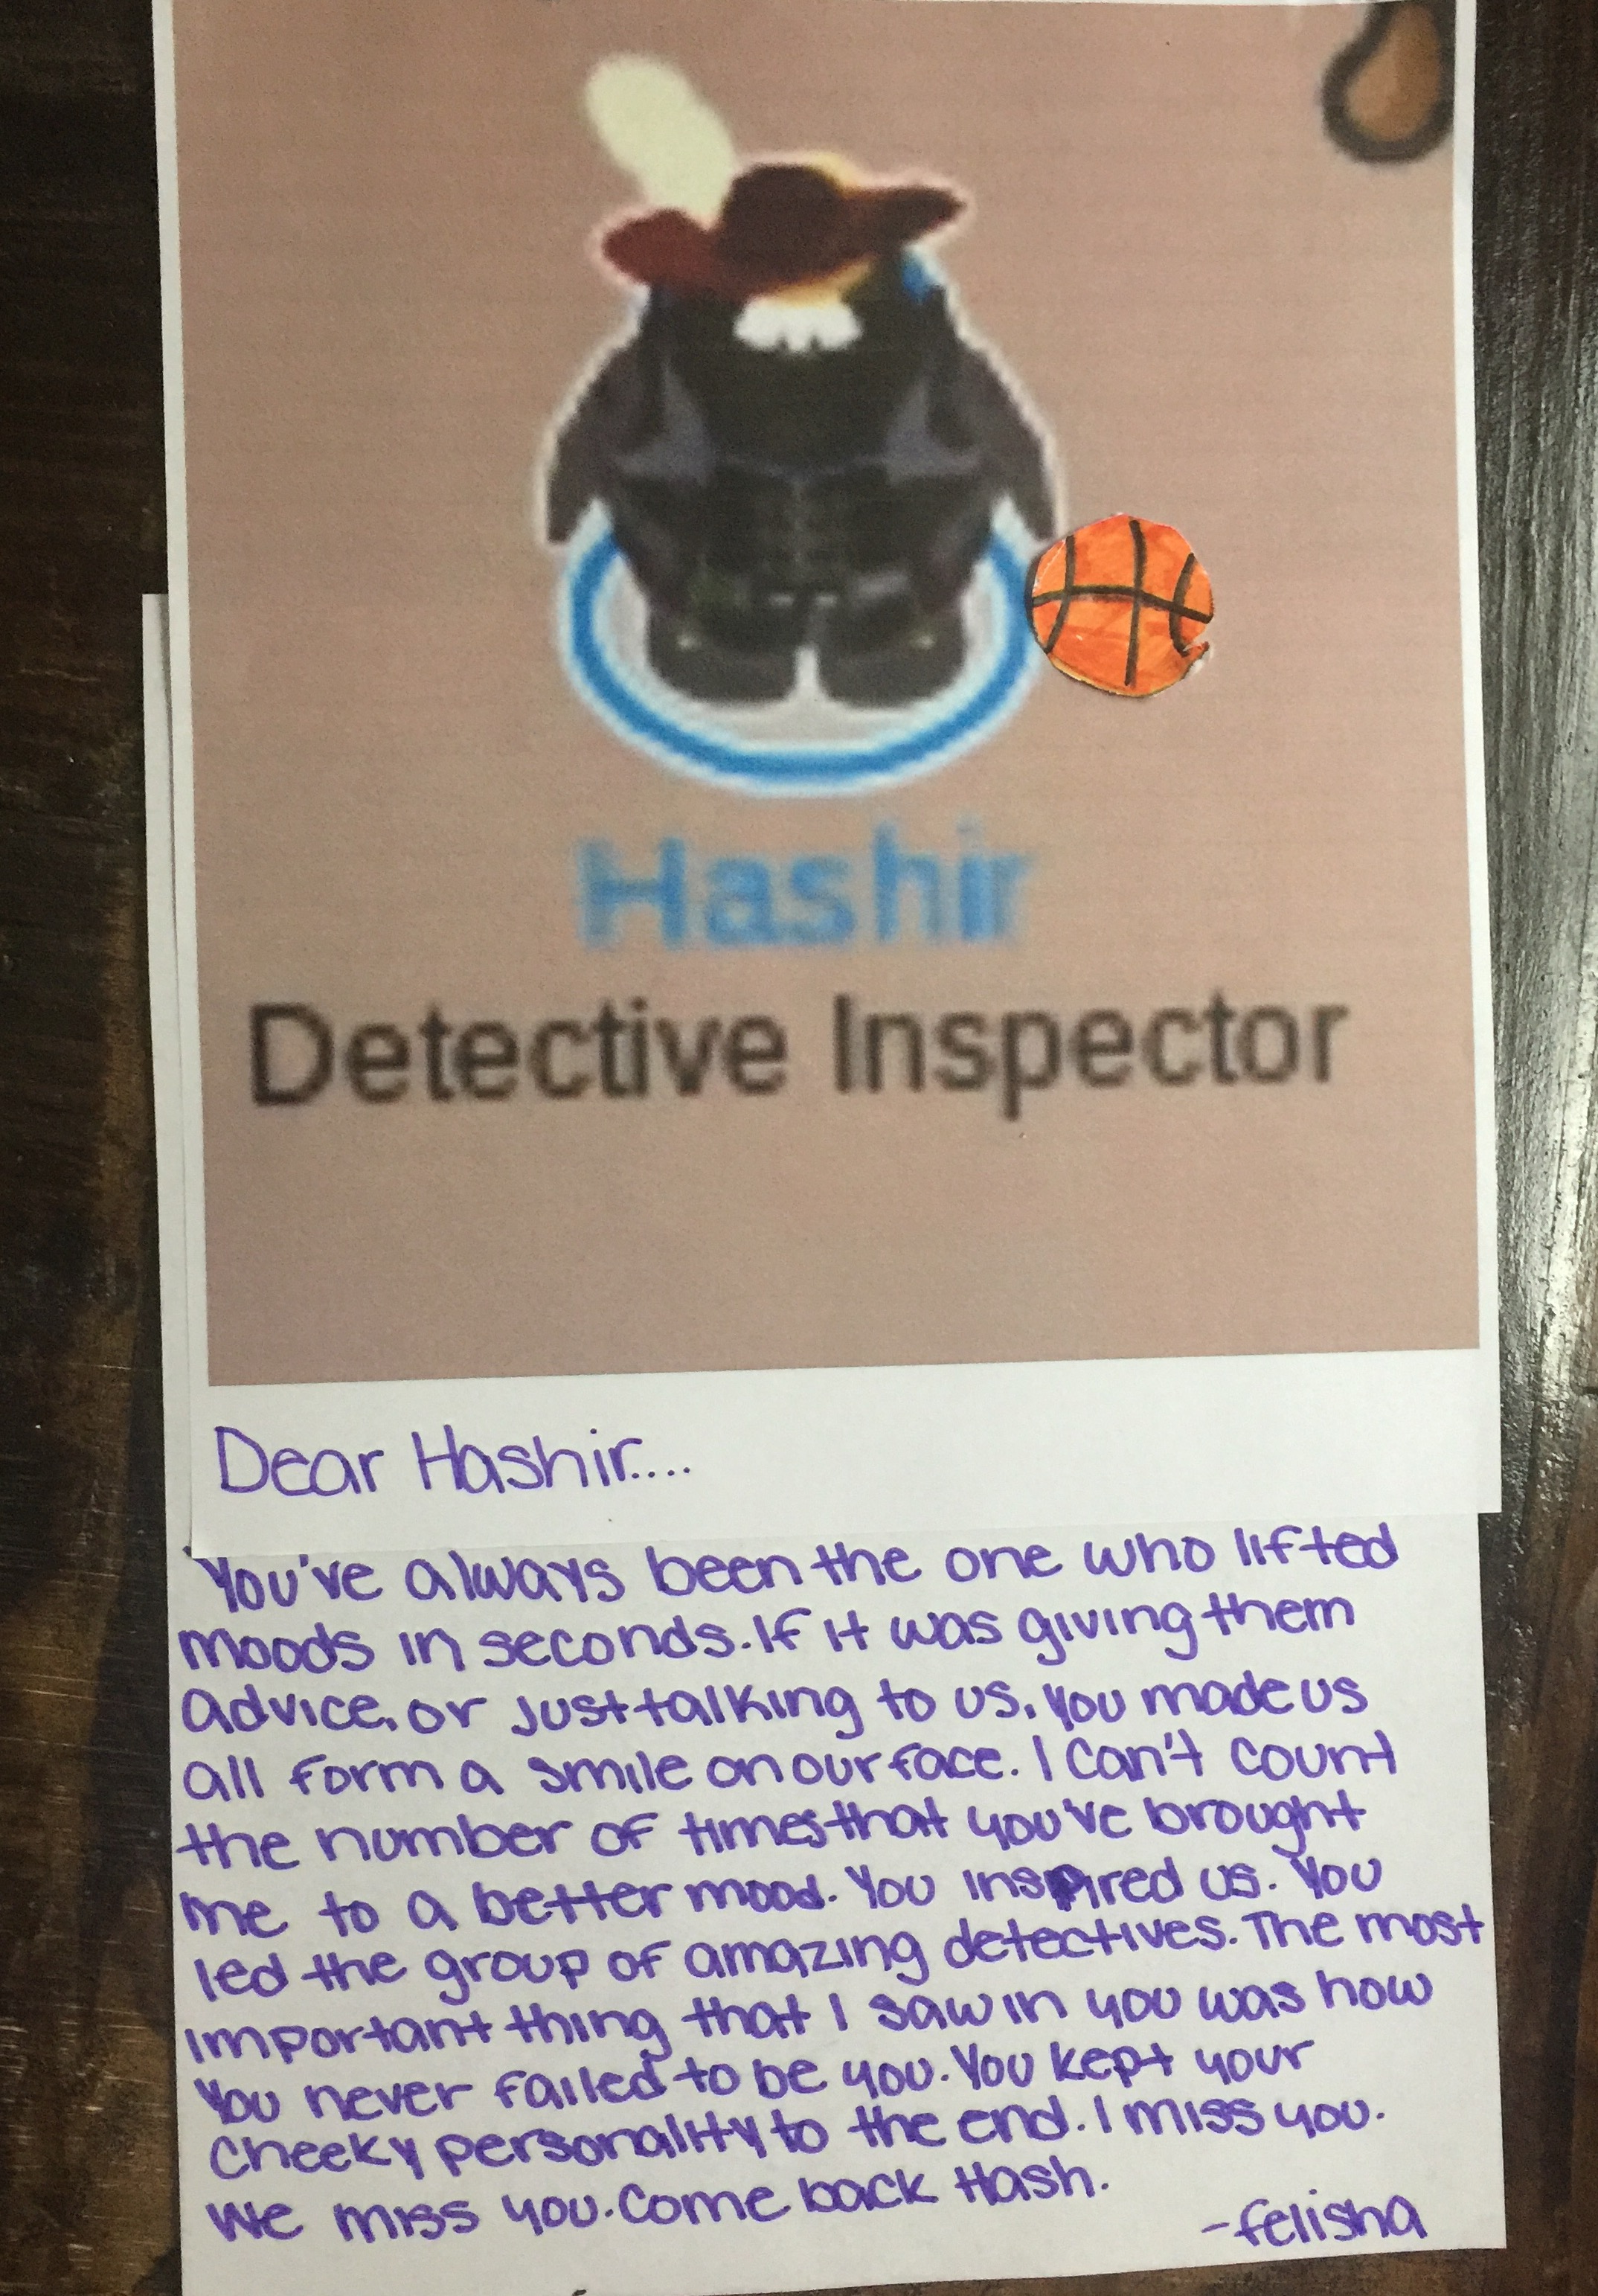 Hashir
Detective Inspector
Dear Hashir....
You've always been the one who lifted
moods in seconds. If it was giving them
advice, or just talking to us, you made us
all form a smile on our face. I can't count
the number of times that you've brought
me to a better mood. You inspired us. You
led the group of amazing detectives. The most
important thing that I saw in you was how
you never failed to be you. You kept your
cheeky personality to the end. I miss you.
We miss you. Come back Hash.
-felisha